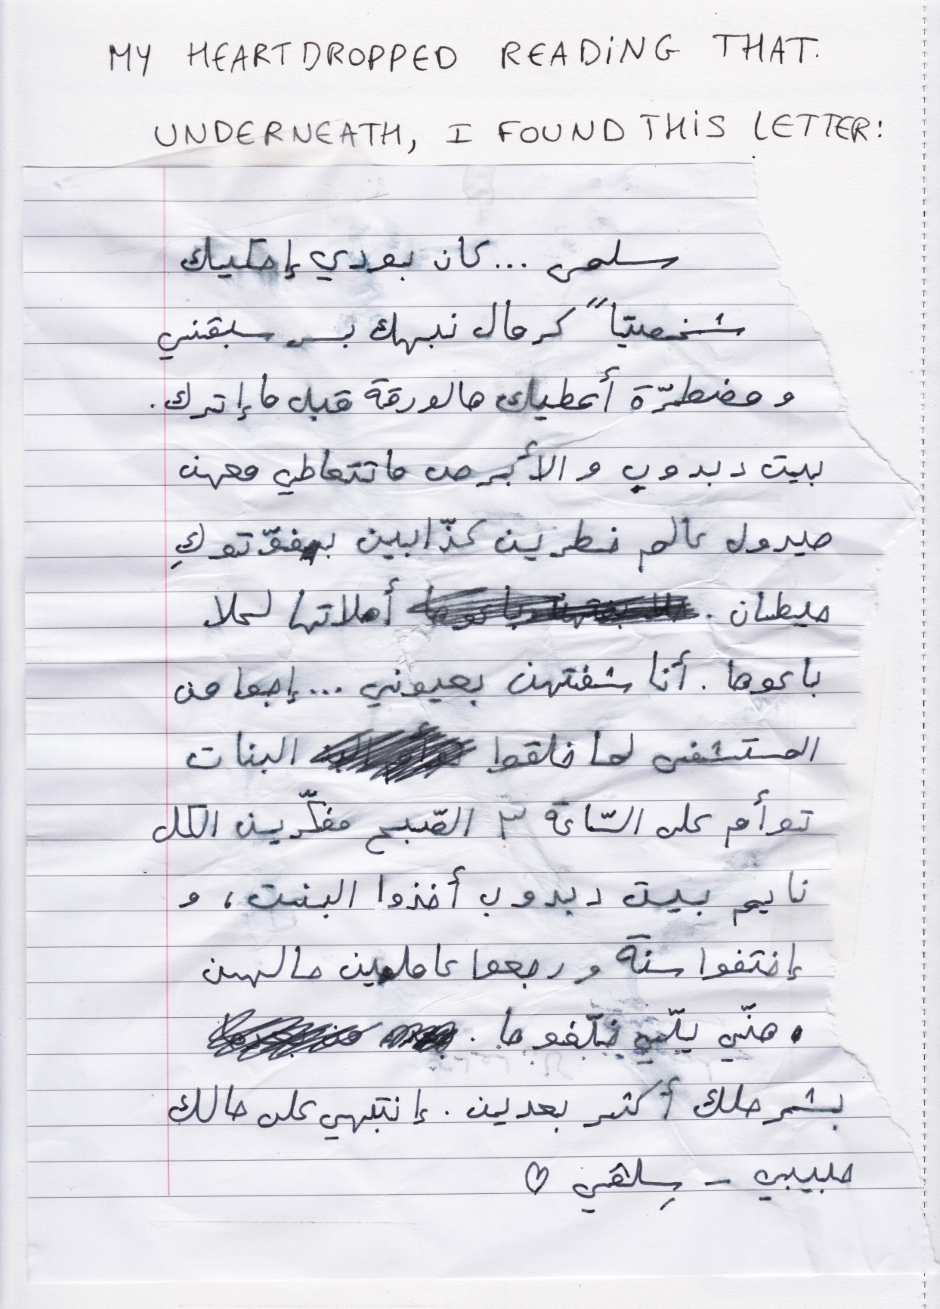 MY HEART DROPPED READING THAT.
UNDERNEATH, I FOUND THIS LETTER:
سلمى ... كان بودي إحكيك
شخصيّاً كرمال نبهك بس سبقني
و مضطرّة أعطيك هالورقة قبل ما إترك.
بيت دبدوب و الأبرص ما تتعاطي معهن
هيدول عالم خطرين كذّابين بيفوّتوكِ
حيطان. أهلاتها لهلا
باعوها. أنا شفتهن بعيوني ... إجوا من
المستشفى لما خلقوا البنات
توأم على السّاعة ٣ الصّبح مفكّرين الكل
نايم بيت دبدوب أخذوا البنت، و
إختفوا سنة و رجعوا عاملين حالهن
هنّي يلّي خلّفوها.
بشرحلك أكتر بعدين. إنتبهي على حالك
حبيبي - سِلفي ♡